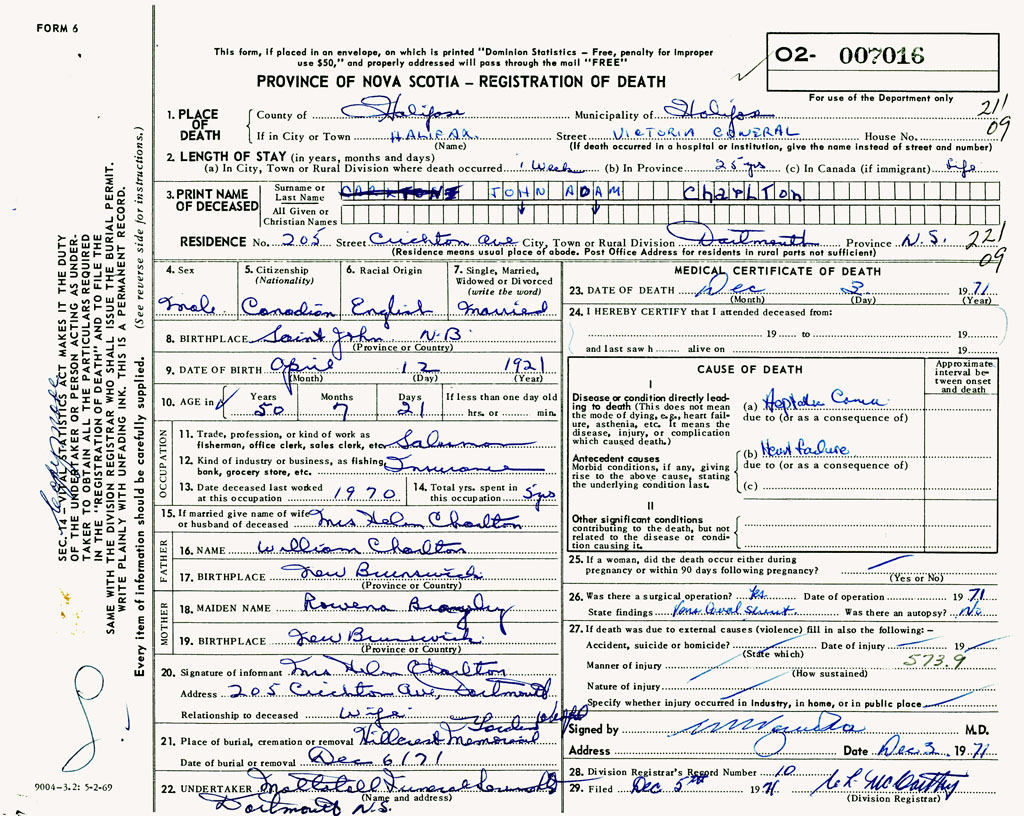 FORM 6
This form, if placed in an envelope, on which is printed "Dominion Statistics – Free, penalty for improper
use $50," and properly addressed will pass through the mail "FREE"
PROVINCE OF NOVA SCOTIA – REGISTRATION OF DEATH
02- 007016
For use of the Department only
211
09
1. PLACE OF DEATH
County of Halifax Municipality of Halifax
If in City or Town HALIFAX. Street VICTORIA GENERAL House No.
(Name) (If death occurred in a hospital or institution, give the name instead of street and number)
2. LENGTH OF STAY (in years, months and days)
(a) In City, Town or Rural Division where death occurred 1 Week (b) In Province 25 yrs (c) In Canada (if immigrant) life
3. PRINT NAME OF DECEASED
Surname or Last Name JOHN ADAM Charlton
All Given or Christian Names
RESIDENCE No. 205 Street Crichton Ave City, Town or Rural Division Dartmouth Province N.S.
221
09
(Residence means usual place of abode. Post Office Address for residents in rural parts not sufficient)
4. Sex Male
5. Citizenship (Nationality) Canadian
6. Racial Origin English
7. Single, Married, Widowed or Divorced (write the word) Married
8. BIRTHPLACE Saint John N.B
(Province or Country)
9. DATE OF BIRTH April 12 1921
(Month) (Day) (Year)
10. AGE in Years 50 Months 7 Days 21 If less than one day old
hrs. or min.
OCCUPATION
11. Trade, profession, or kind of work as
fisherman, office clerk, sales clerk, etc. Salesman
12. Kind of industry or business, as fishing,
bank, grocery store, etc. Insurance
13. Date deceased last worked
at this occupation 1970
14. Total yrs. spent in
this occupation 5 yrs
15. If married give name of wife
or husband of deceased Mrs Helen Charlton
FATHER
16. NAME William Charlton
17. BIRTHPLACE New Brunswick
(Province or Country)
MOTHER
18. MAIDEN NAME Rowena
19. BIRTHPLACE New Brunswick
(Province or Country)
20. Signature of informant Mrs Helen Charlton
Address 205 Crichton Ave, Dartmouth
Relationship to deceased Wife
21. Place of burial, cremation or removal Hillcrest Memorial Garden
Date of burial or removal Dec 6/71
22. UNDERTAKER Mattatall Funeral
(Name and address)
Dartmouth N.S.
MEDICAL CERTIFICATE OF DEATH
23. DATE OF DEATH Dec 3 1971
(Month) (Day) (Year)
24. I HEREBY CERTIFY that I attended deceased from:
19 to 19
and last saw h alive on 19
CAUSE OF DEATH
Approximate interval between onset and death
I
Disease or condition directly leading to death (This does not mean the mode of dying, e.g., heart failure, asthenia, etc. It means the disease, injury, or complication which caused death.)
(a) Heptatic Coma
due to (or as a consequence of)
Antecedent causes
Morbid conditions, if any, giving rise to the above cause, stating the underlying condition last.
(b) Heart failure
due to (or as a consequence of)
(c)
II
Other significant conditions
contributing to the death, but not related to the disease or condition causing it.
25. If a woman, did the death occur either during
pregnancy or within 90 days following pregnancy?
(Yes or No)
26. Was there a surgical operation? Yes Date of operation 1971
State findings Was there an autopsy? No
27. If death was due to external causes (violence) fill in also the following: –
Accident, suicide or homicide? Date of injury 19
(State which)
573.9
Manner of injury
(How sustained)
Nature of injury
Specify whether injury occurred in industry, in home, or in public place
Signed by M.D.
Address Date Dec 3 1971
28. Division Registrar's Record Number 10
29. Filed Dec 5th 1971
(Division Registrar)
SEC. 14 – VITAL STATISTICS ACT MAKES IT THE DUTY
OF THE UNDERTAKER OR PERSON ACTING AS UNDER-
TAKER TO OBTAIN ALL THE PARTICULARS REQUIRED
IN THE "REGISTRATION OF DEATH" AND TO FILE THE
SAME WITH THE DIVISION REGISTRAR WHO SHALL ISSUE THE BURIAL PERMIT.
WRITE PLAINLY WITH UNFADING INK. THIS IS A PERMANENT RECORD.
Every item of information should be carefully supplied. (See reverse side for instructions.)
9004-3.2: 5-2-69